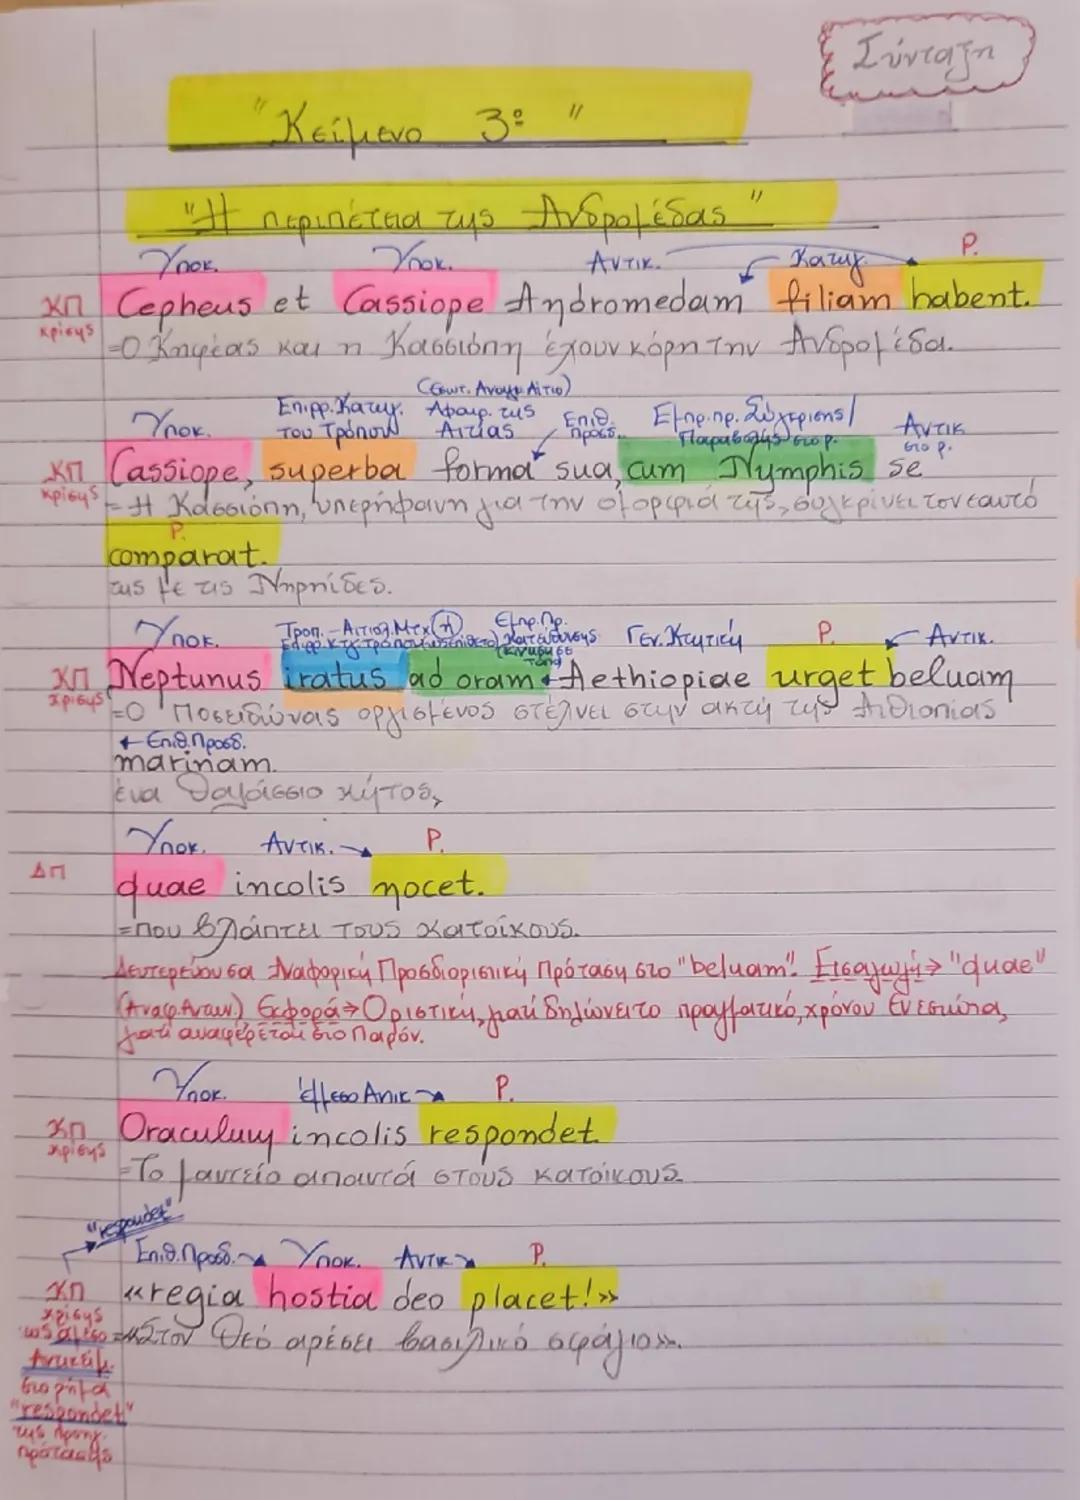 Σύνταξη
"Κείμενο 3º"
"Η περιπέτεια της Ανδρομέδας"
Υποκ. Υποκ. Αντικ. Κατηγ. Ρ.
ΚΠ κρίσης Cepheus et Cassiope Andromedam filiam habent.
=Ο Κηφέας και η Κασσιόπη έχουν κόρη την Ανδρομέδα.
(Εσωτ. Αναγκ. Αίτιο)
Υποκ. Επιρρ. Κατηγ. του Τρόπου Αφαιρ. της Αιτίας Επιθ. Προσδ. Εμπρ. πρ. Σύγκρισης/Παραβολής στο ρ. Αντικ στο ρ.
ΚΠ κρίσης Cassiope, superba forma sua, cum Nymphis se
=Η Κασσιόπη, υπερήφανη για την ομορφιά της, συγκρίνει τον εαυτό
Ρ.
comparat.
της με τις Νηρηίδες.
Υποκ. Τροπ.-Αιτιολ. Μτχ (ή) Επιρρ. Κτγ τρόπου (ως επίθετο) Εμπρ. Πρ. Κατεύθυνσης (κίνηση σε τόπο) Γεν. Κτητική Ρ. Αντικ.
ΚΠ κρίσης Neptunus iratus ad oram Aethiopiae urget beluam
=Ο Ποσειδώνας οργισμένος στέλνει στην ακτή της Αιθιοπίας
Επιθ. Προσδ.
marinam.
ένα θαλάσσιο κήτος,
Υποκ. Αντικ. Ρ.
ΔΠ quae incolis nocet.
=που βλάπτει τους κατοίκους.
Δευτερεύουσα Αναφορική Προσδιοριστική Πρόταση στο "beluam". Εισαγωγή→ "quae"
(Αναφ. Αντων.) Εκφορά→ Οριστική, γιατί δηλώνει το πραγματικό, χρόνου Ενεστώτα,
γιατί αναφέρεται στο Παρόν.
Υποκ. έμμεσο Αντικ Ρ.
ΚΠ κρίσης Oraculum incolis respondet
=Το μαντείο απαντά στους κατοίκους.
"respondet"
Επιθ. Προσδ. Υποκ. Αντικ Ρ.
ΚΠ «regia hostia deo placet!»
κρίσης
ως άμεσο =«Στον θεό αρέσει βασιλικό σφάγιο».
Αντικείμ.
στο ρήμα
"respondet"
της προηγ.
πρότασης